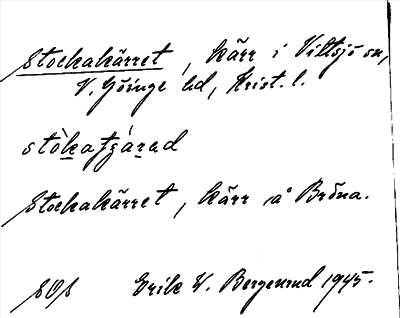 Stockakärret, kärr i Vittsjö sn,
V. Göinge hd, Krist. l.
stòkatʃárad
Stockakärret, kärr å Bröna.
SOS Erik W. Bergenrud 1945.